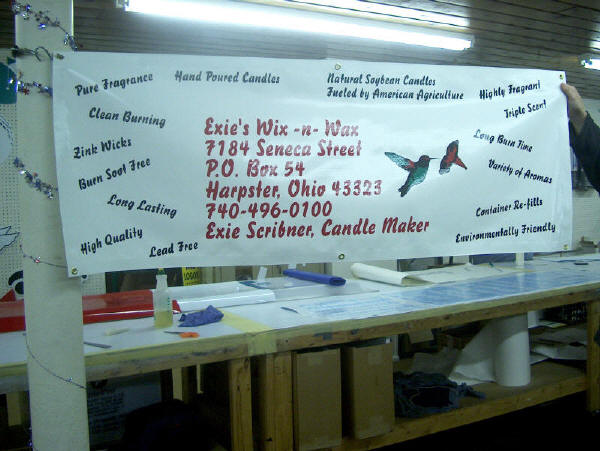 Pure Fragrance
Hand Poured Candles
Natural Soybean Candles
Fueled by American Agriculture
Highly Fragrant
Clean Burning
Triple Scent
Zink Wicks
Long Burn Time
Burn Soot Free
Variety of Aromas
Long Lasting
Container Re-fills
High Quality
Lead Free
Environmentally Friendly
Exie's Wix -n- Wax
7184 Seneca Street
P.O. Box 54
Harpster, Ohio 43323
740-496-0100
Exie Scribner, Candle Maker